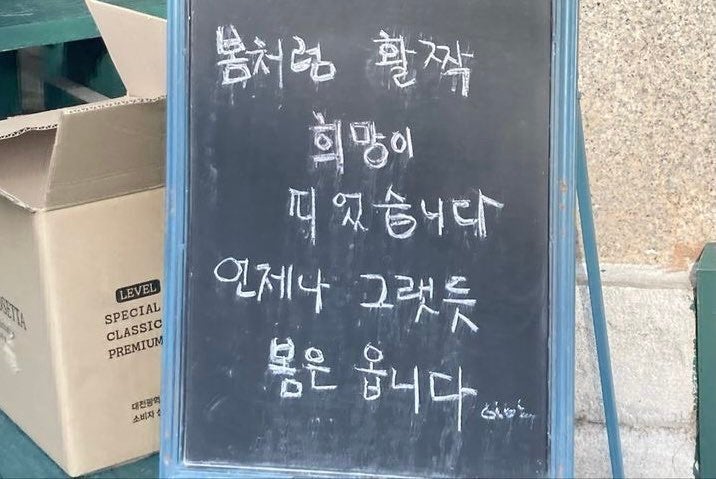 봄처럼 활짝
희망이
띠었습니다
언제나 그랫듯
봄은 옵니다
LEVEL
SPECIAL
CLASSIC
PREMIUM
대전광역
소비자 상